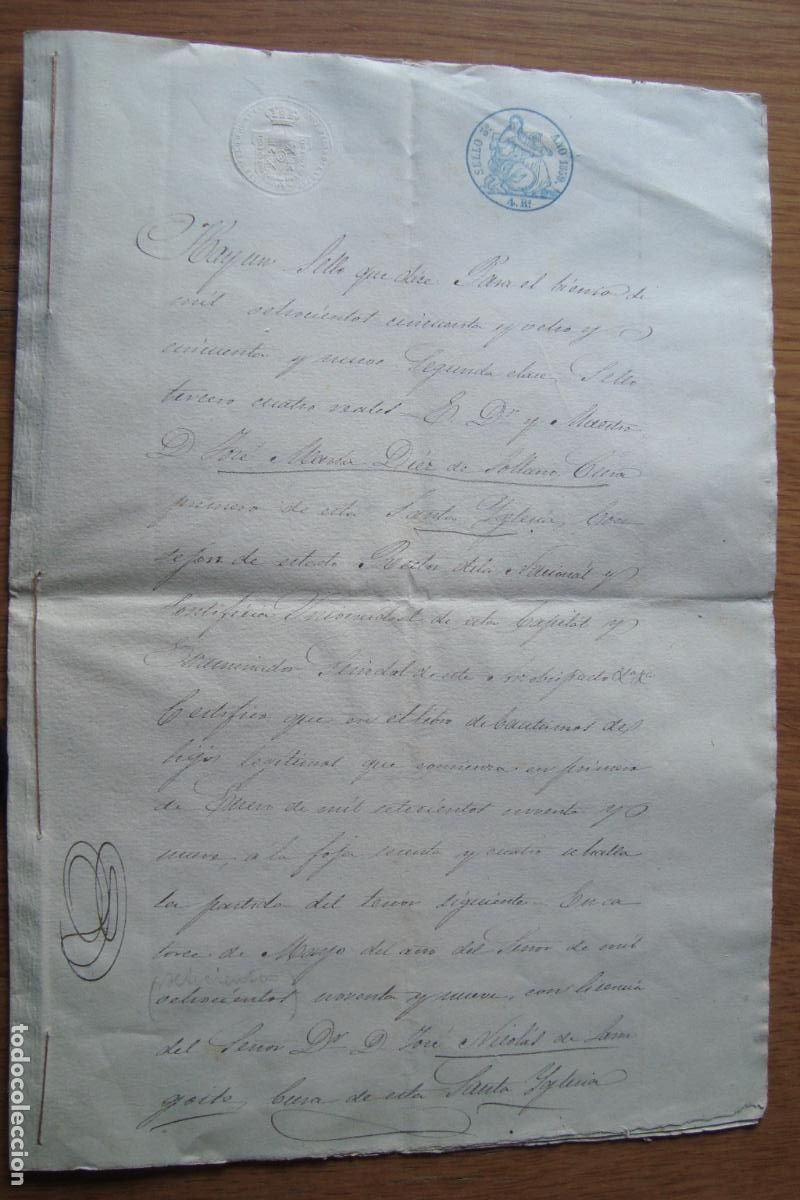 SELLO 3º AÑO 1859.
4. Rs
Hay un Sello que dice Para el bienio de
mil ochocientos cincuenta y ocho y
cincuenta y nueve Segunda clase Sello
tercero cuatro reales El Dr y Maestro
D. José María Diez de Sollano, Cura
primero de esta Santa Yglesia, Con
de estado Rector dela Nacional y
Pontificia Universidad de esta Capital y
Examinador Sinodal de este arzobispado
Certifico que en el libro de bautismos de
hijos legitimos que comienza en primero
de Enero de mil setecientos noventa y
nueve, a la foja y cuatro se halla
la partida del tenor siguiente. En ca
torce de Mayo del año del Señor de mil
setecientos
(ochocientos) noventa y nueve, con licencia
del Señor Dr. D. José Nicolás de Lara
goite, Cura de esta Santa Yglesia
todocoleccion